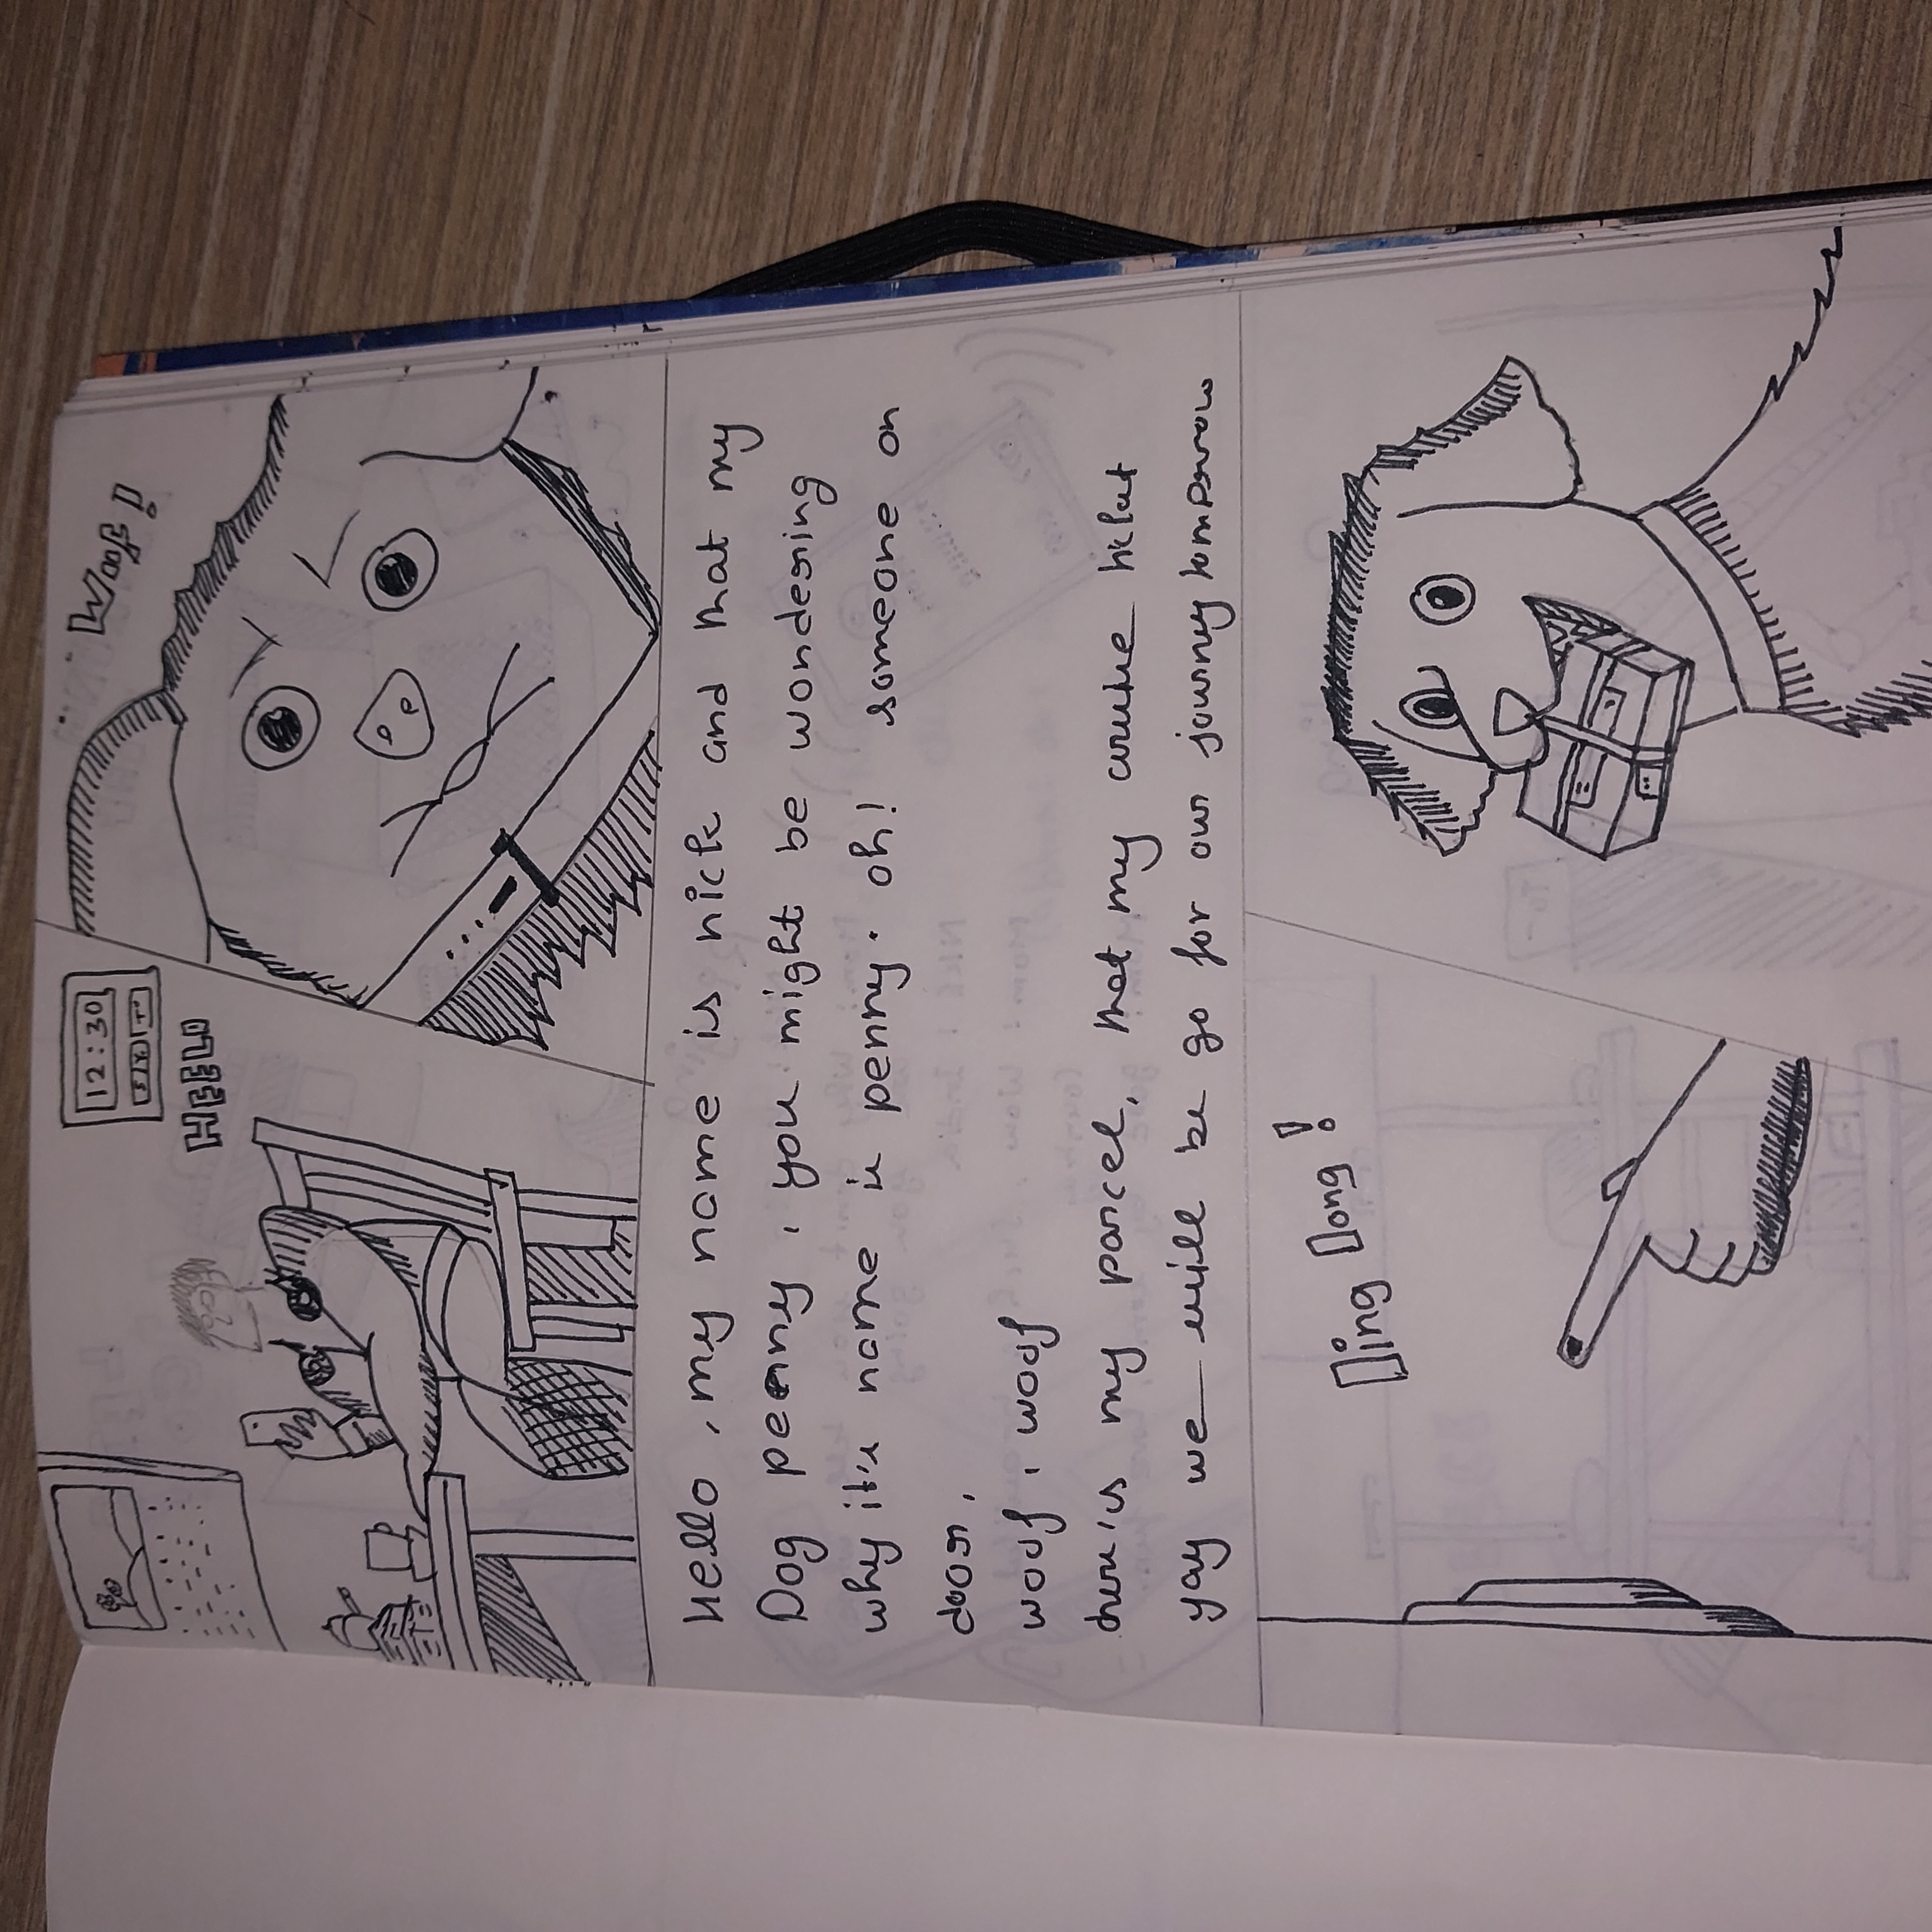 12:30
HEELO
Woof!
Hello, my name is nick and that my
Dog penny, you might be wondering
why it's name is penny. oh! someone on
door,
woof, woof
my parcel, that my
yay we will be go for our journey tomorrow
Ding Dong!